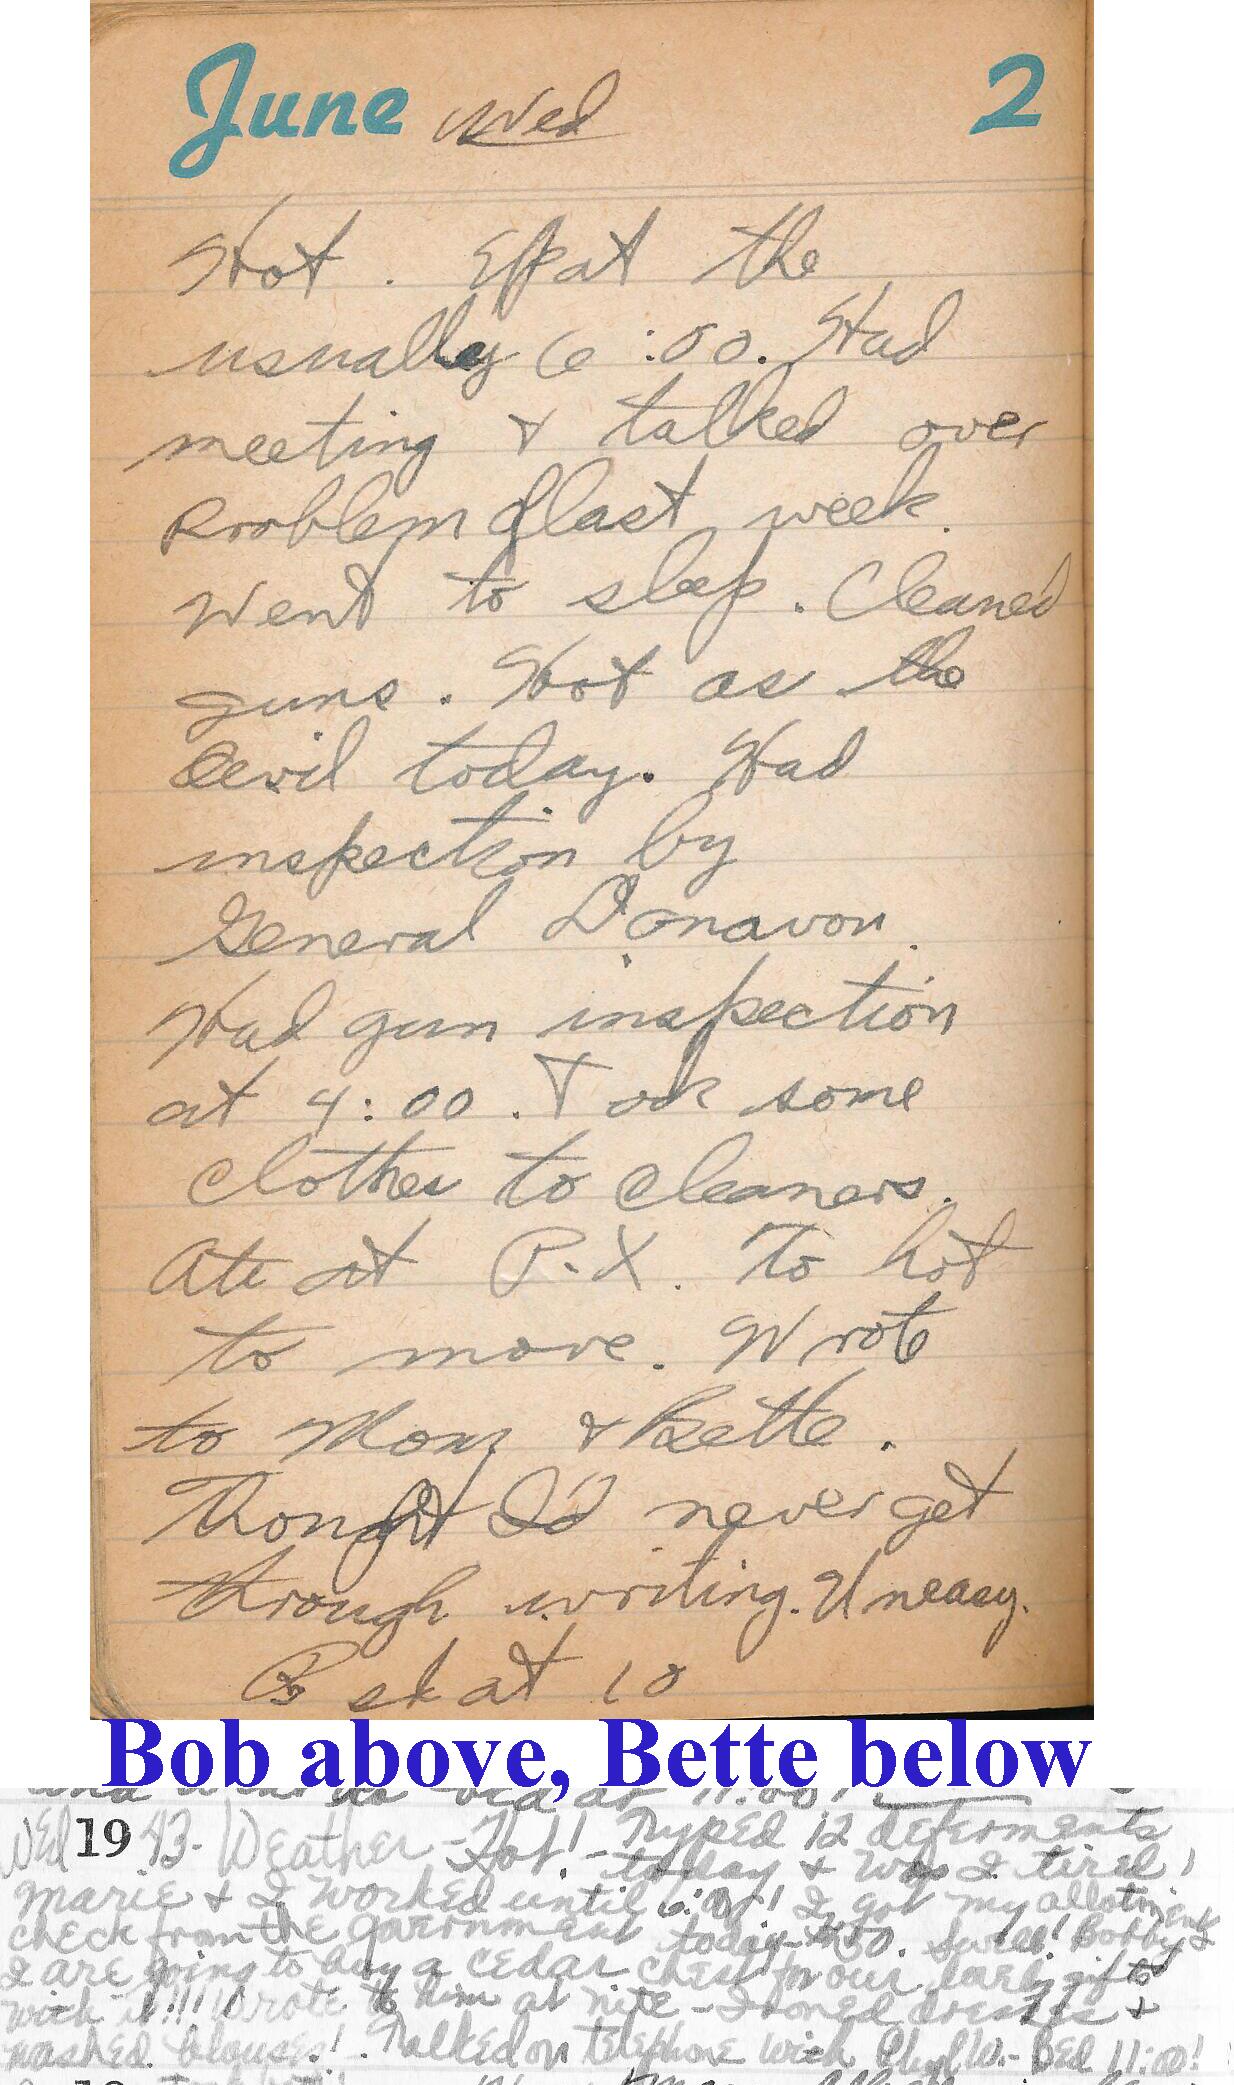 June Wed 2
Hot. Up at the
usually 6:00. Had
meeting & talked over
problem of last week.
Went to sleep. Cleaned
guns. Hot as the
devil today. Had
inspection by
General Donavon.
Had gun inspection
at 4:00. Took some
clothes to cleaners.
Ate at P.X. To hot
to move. Wrote
to Mom & Bette.
Thought I'd never get
through writing. Uneasy.
at 10
Bob above, Bette below
bed at 11:00!
Wed 1943- Weather - Hot! - Typed 12 deferments
today & was I tired!
Marie & I worked until I got my allotment
check from the government today - $50. Swell! Bobby &
I are going to buy a cedar chest for our gifts
with it!!! Wrote to him at nite - Ironed dresses &
washed blouses! Talked on telephone with Phyl W. - Bed 11:00!